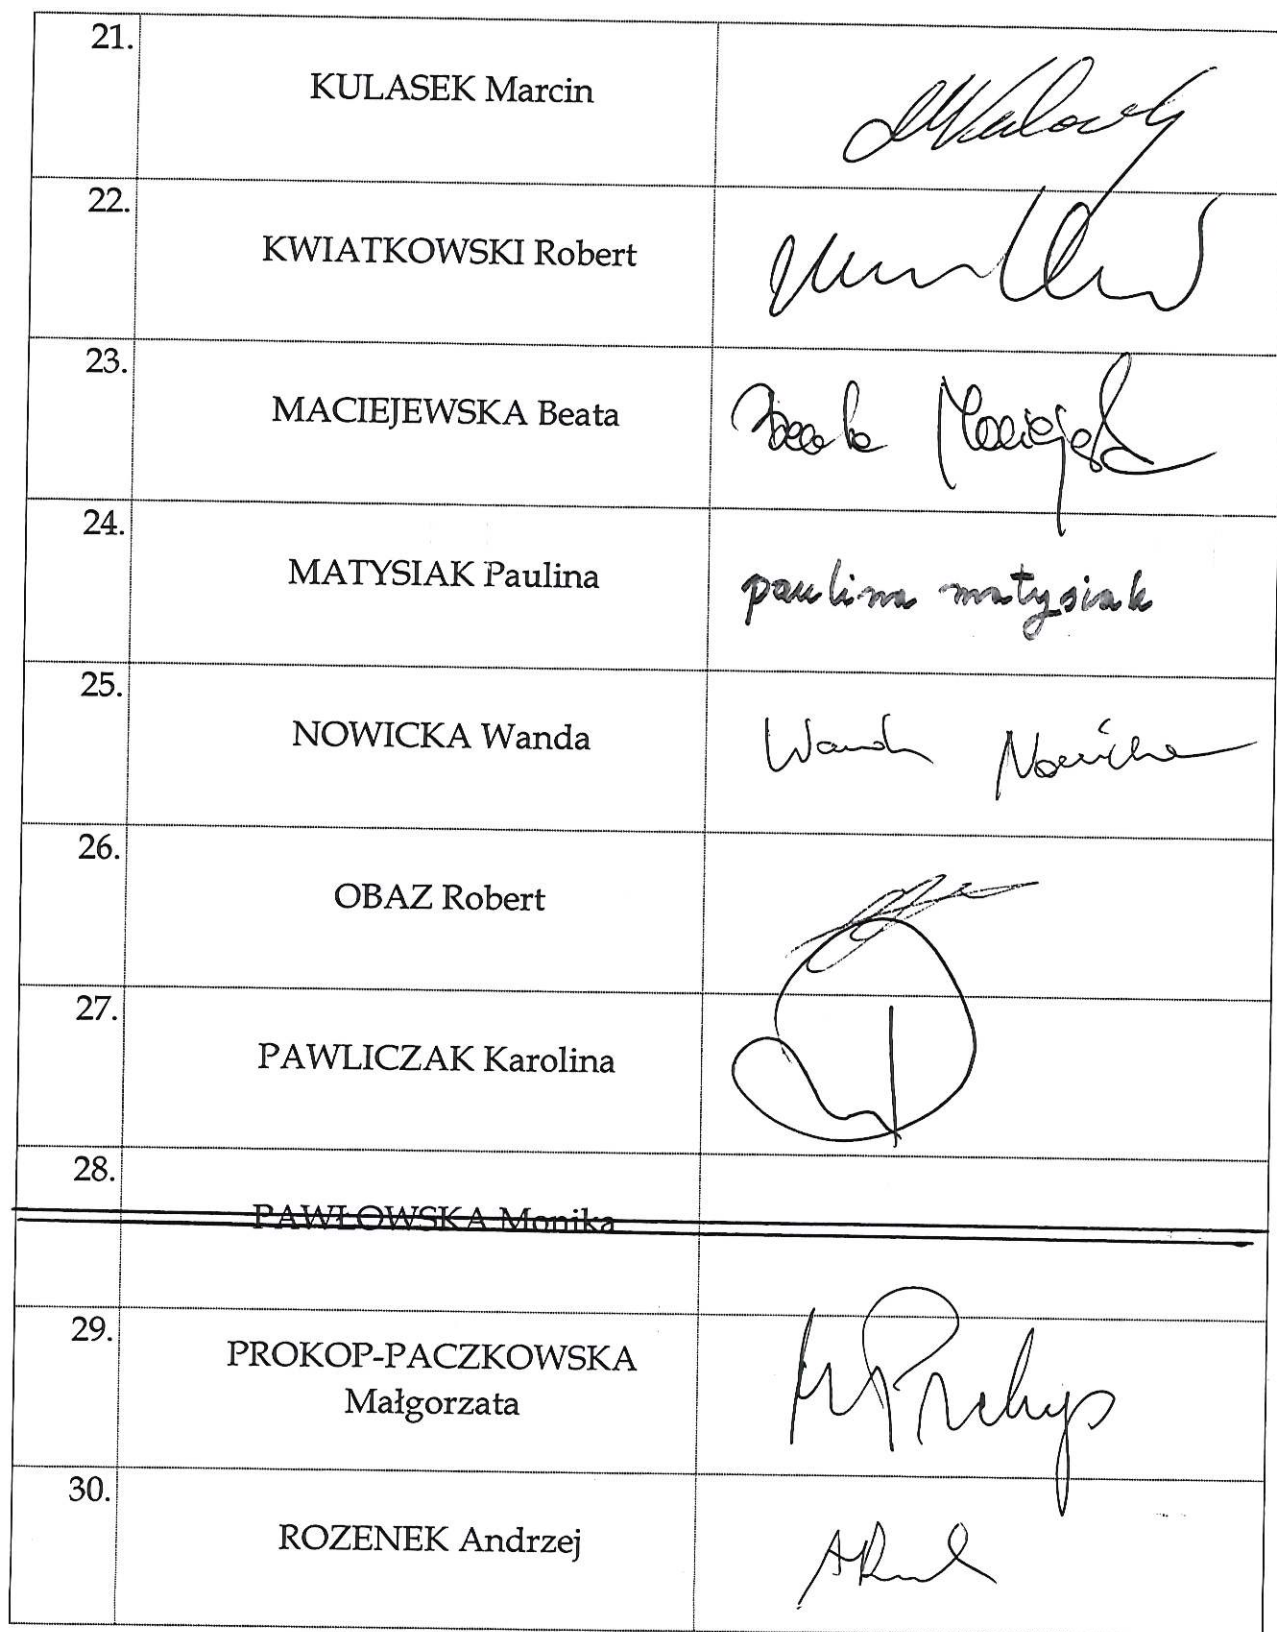 21.
KULASEK Marcin
22.
KWIATKOWSKI Robert
23.
MACIEJEWSKA Beata
Beata Maciejewska
24.
MATYSIAK Paulina
paulina matysiak
25.
NOWICKA Wanda
Wanda Nowicka
26.
OBAZ Robert
27.
PAWLICZAK Karolina
28.
PAWŁOWSKA Monika
29.
PROKOP-PACZKOWSKA
Małgorzata
30.
ROZENEK Andrzej